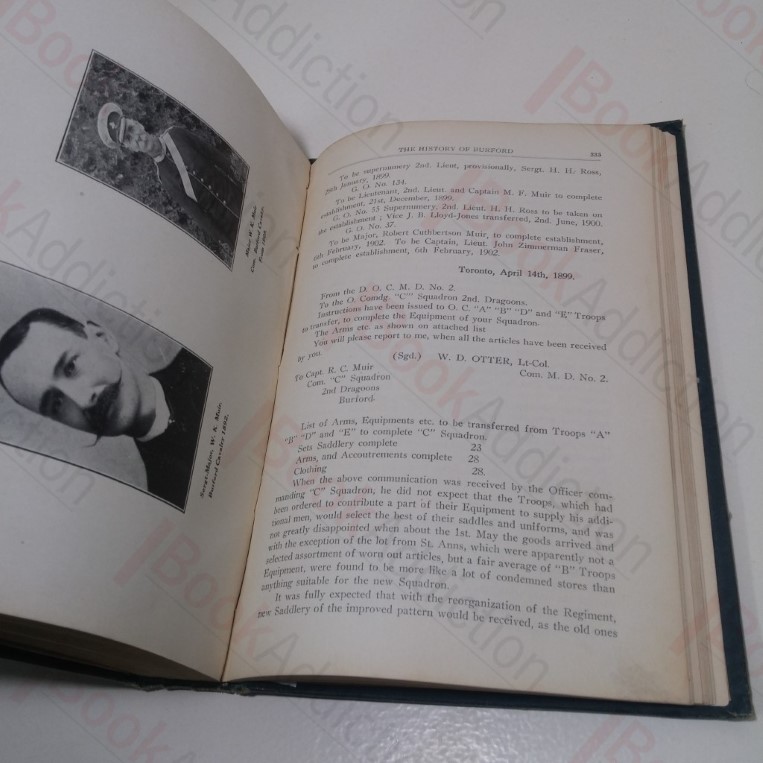 Major R. C. Muir
Com. Burford Cavalry
Sergt-Major W. K. Muir,
Burford Cavalry 1892.
THE HISTORY OF BURFORD 333
To be supernumery 2nd. Lieut, provisionally, Sergt. H. H. Ross,
28th January, 1899.
G. O. No. 134.
To be Lieutenant, 2nd. Lieut. and Captain M. F. Muir to complete
establishment, 21st, December, 1899.
G. O. No. 55 Supernumery, 2nd. Lieut. H. H. Ross to be taken on
the establishment; Vice J. B. Lloyd-Jones transferred, 2nd. June, 1900.
G. O. No. 37.
To be Major, Robert Cuthbertson Muir, to complete establishment,
6th February, 1902. To be Captain, Lieut. John Zimmerman Fraser,
to complete establishment, 6th February, 1902.
Toronto, April 14th, 1899.
From the D. O. C. M. D. No. 2.
To the O. Comdg. "C" Squadron 2nd. Dragoons.
Instructions have been issued to O. C. "A" "B" "D" and "E" Troops
to transfer, to complete the Equipment of your Squadron.
The Arms etc. as shown on attached list
You will please report to me, when all the articles have been received
by you.
(Sgd.) W. D. OTTER, Lt-Col.
Com. M. D. No. 2.
To Capt. R. C. Muir
Com. "C" Squadron
2nd Dragoons
Burford.
List of Arms, Equipments etc. to be transferred from Troops "A"
"B" "D" and "E" to complete "C" Squadron.
Sets Saddlery complete 23
Arms, and Accoutrements complete 28
Clothing 28.
When the above communication was received by the Officer com-
manding "C" Squadron, he did not expect that the Troops, which had
been ordered to contribute a part of their Equipment to supply his addi-
tional men, would select the best of their saddles and uniforms, and was
not greatly disappointed when about the 1st. May the goods arrived and
with the exception of the lot from St. Anns, which were apparently not a
selected assortment of worn out articles, but a fair average of "B" Troops
Equipment, were found to be more like a lot of condemned stores than
anything suitable for the new Squadron.
It was fully expected that with the reorganization of the Regiment,
new Saddlery of the improved pattern would be received, as the old ones
BookAddiction